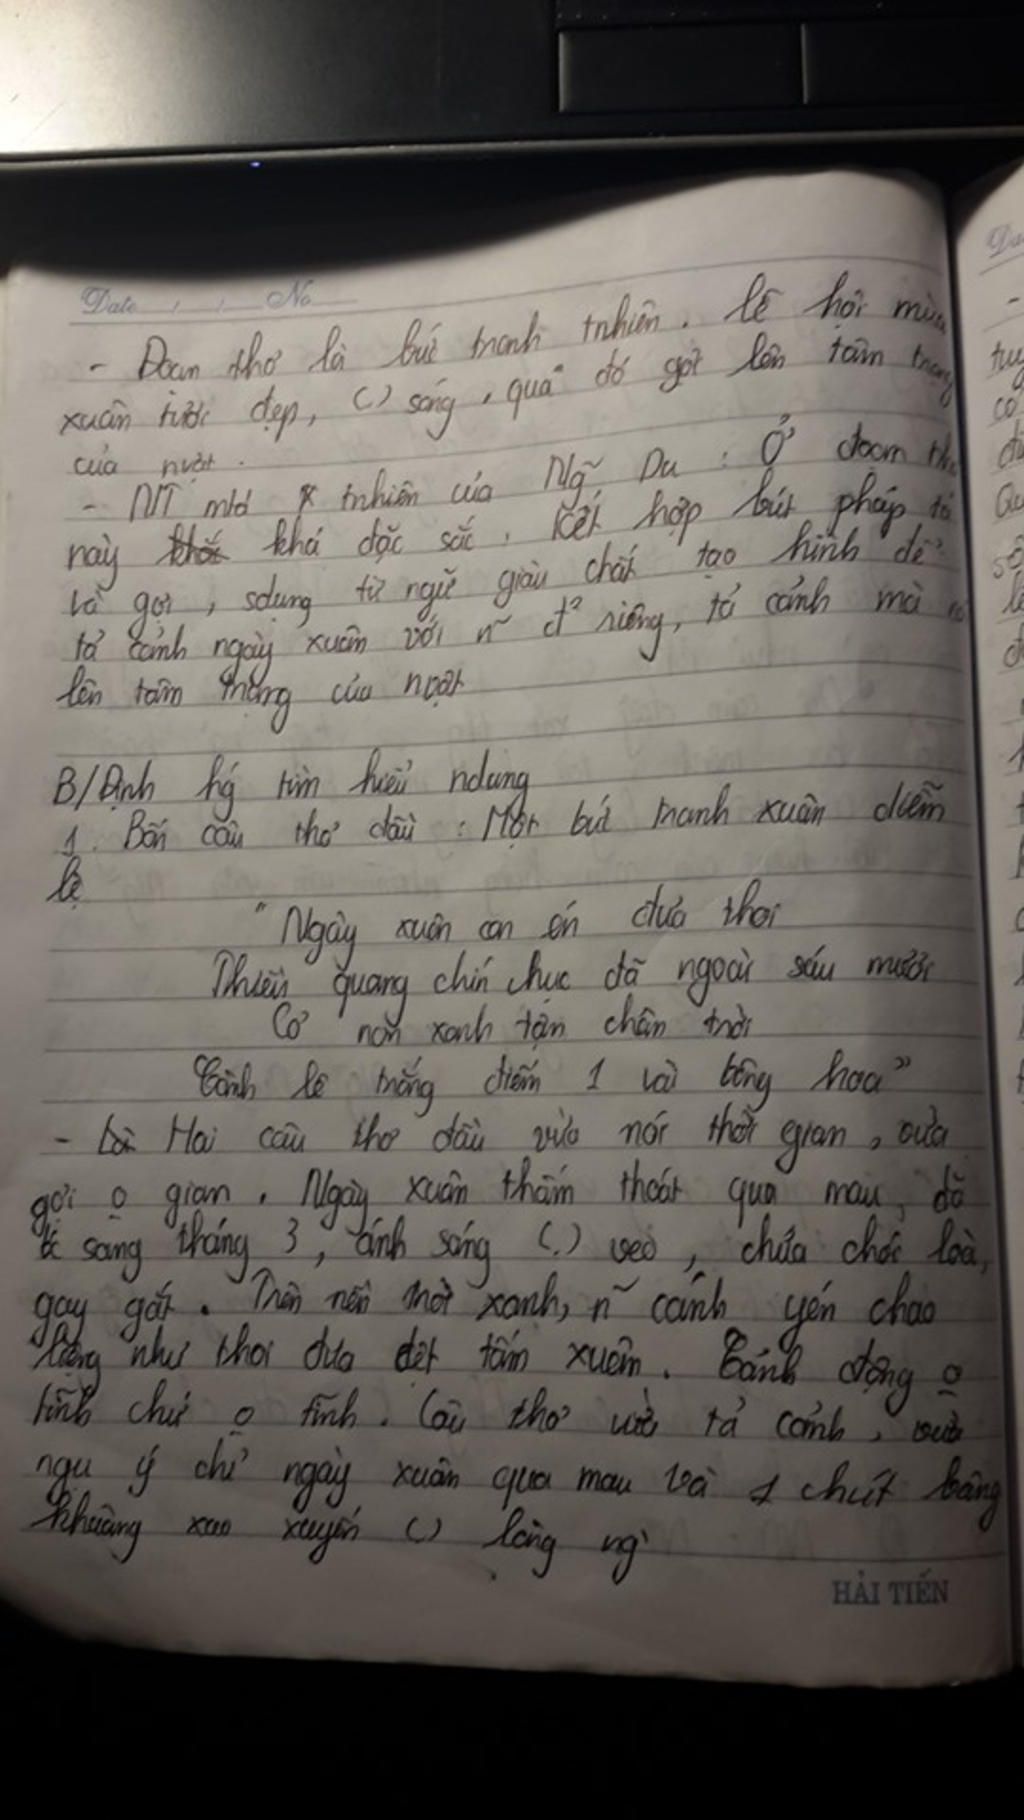 Date / / No
- Đoạn thơ là bức tranh tnhiên. lễ hội mùa
xuân tươi đẹp, ( ) sáng, qua đó gợi lên tâm trạng
của nvật.
- NT mtả tnhiên của Ng~ Du : Ở đoạn thơ
này khá đặc sắc. Kết hợp bút pháp tả
và gợi, sdụng từ ngữ giàu chất tạo hình để
tả cảnh ngày xuân với n~ đ² riêng, tả cảnh mà
lên tâm trạng của nvật
B/Định hg tìm hiểu ndung
1. Bốn câu thơ đầu : Một bức tranh xuân diễm
lệ
" Ngày xuân con én đưa thoi
Thiều quang chín chục đã ngoài sáu mươi
Cỏ non xanh tận chân trời
Cành lê trắng điểm 1 vài bông hoa"
- Hai câu thơ đầu vừa nói thời gian, vừa
gợi o gian. Ngày xuân thấm thoát qua mau, đã
sang tháng 3, ánh sáng (.) veo, chưa chói loà,
gay gắt. Trên nền trời xanh, n~ cánh yến chao
liệng như thoi đưa dệt tấm xuân. Cảnh động o
tĩnh chứ o tĩnh. Câu thơ vừa tả cảnh, vừa
ngụ ý chỉ ngày xuân qua mau và 1 chút bâng
khuâng xao xuyến ( ) lòng ng
HẢI TIẾN